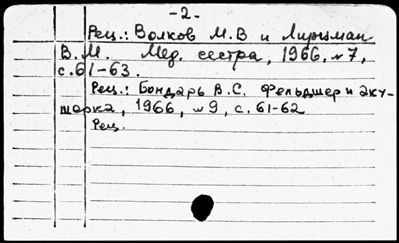 -2.
Рец.: Волков М.В и Лирцман
В.М. Мед. сестра, 1966, №7,
с.61-63.
Рец.: Бондарь В.С. Фельдшер и аку-
шерка, 1966, №9, с. 61-62
Рец.